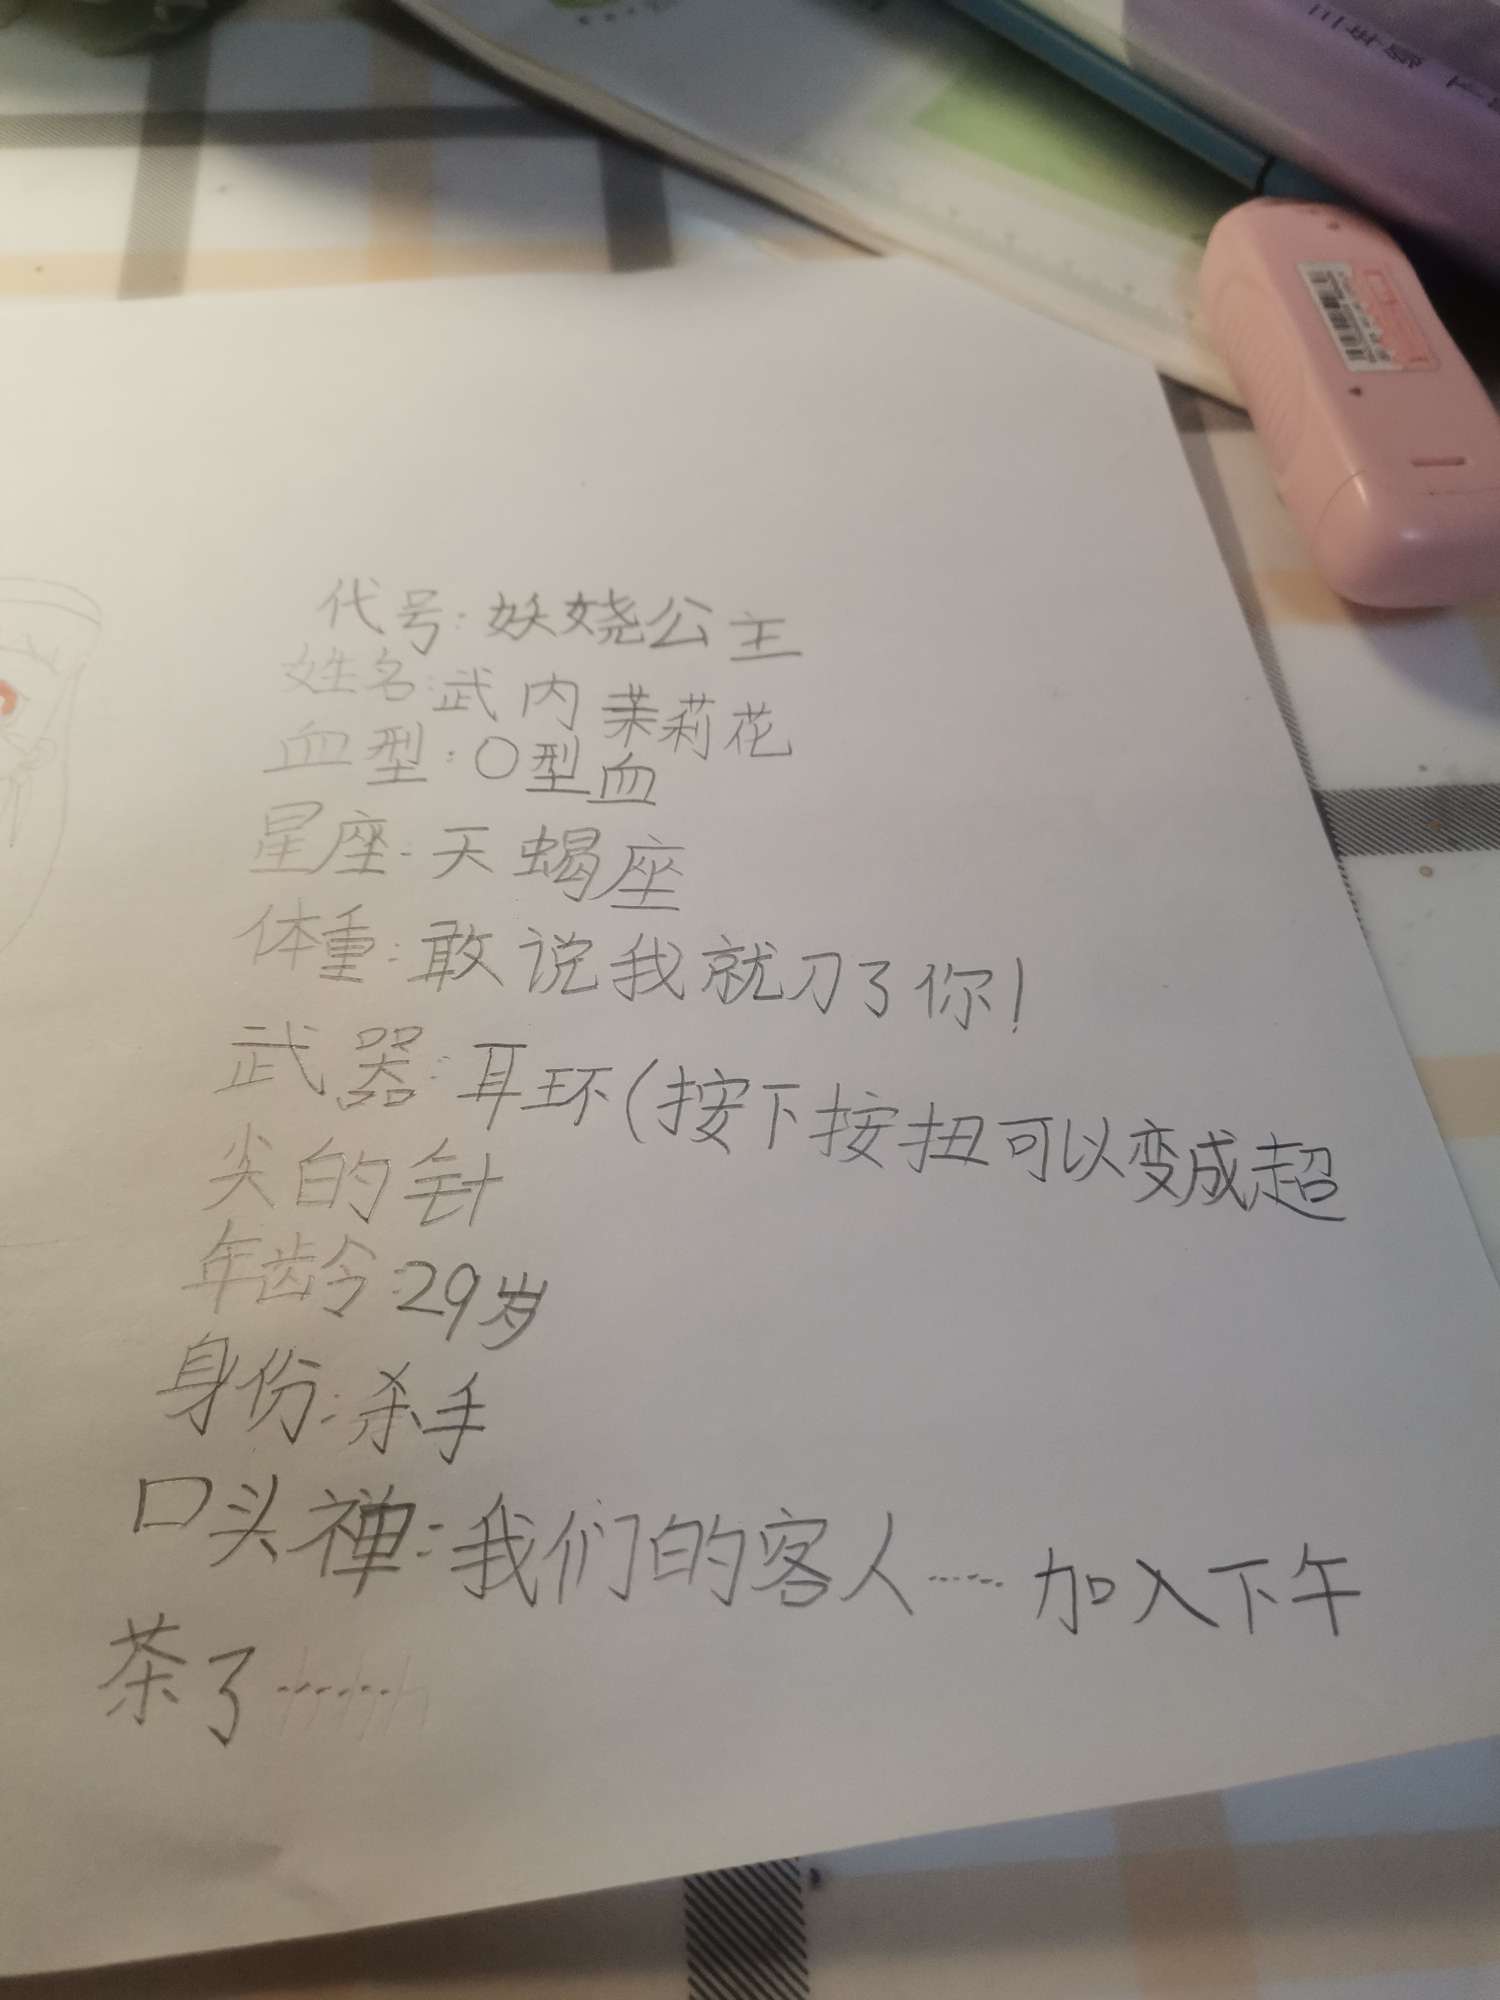 代号：妖娆公主
姓名：武内茉莉花
血型：O型血
星座：天蝎座
体重：敢说我就刀了你！
武器：耳环（按下按扭可以变成超
尖的针
年龄：29岁
身份：杀手
口头禅：我们的客人……加入下午
茶了……